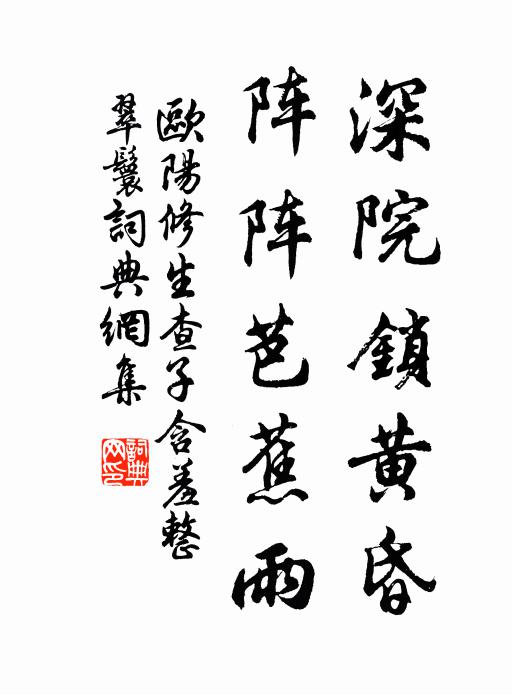 深院鎖黄昏
阵阵芭蕉雨
歐陽修生查子含羞整
翠鬟詞典網集
詞典
网印